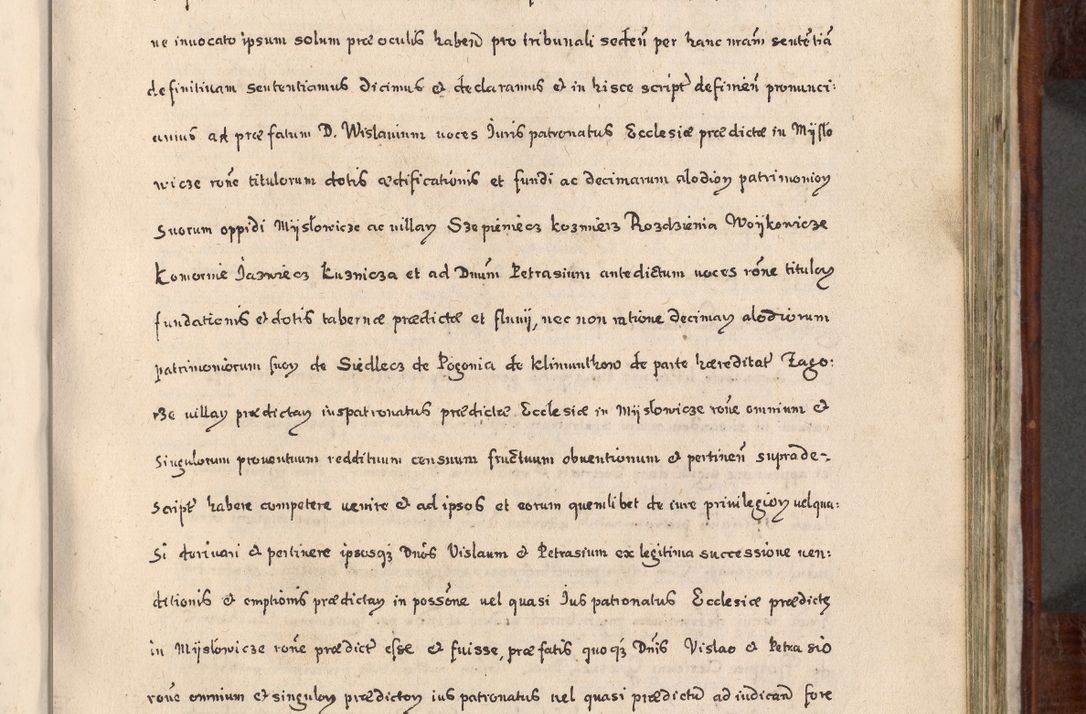 ne invocato ipsum solum præ oculis habeñ pro tribunali sedeñ per hanc nrām sentētiā
definitivam sententiamus dicimus et declaramus et in hisce script̃ definień pronunci:
amus ad præfatum D. Wislavium voces Iuris patronatus Ecclesiæ prædictæ in Mÿsło
wicze rõne titulorum dotis ædificationis et fundi ac decimarum alodioꝝ patrimonioꝝ
suorum oppidi Mÿsłowicze ac villaꝝ Szepieniecz kozmierz Rozdzienia Woÿkowicze
Komornie Jazwiecz Kuznicza et ad Dnūm Petrasium antedictum voces rõne tituloꝝ
fundationis et dotis tabernæ prædictæ et fluvij, nec non ratione decimaꝝ alodiorum
patrimoniorum suoꝝ de Siedlecz de Pogonia de Klimunthow de parte hæreditat̃ Zago:
rze villaꝝ prædictaꝝ iuspatronatus prædictæ Ecclesiæ in Mÿsłowicze rõne omnium et
singulorum proventuum reddituum censuum fructuum obventionum et pertineñ suprade:
script̃ habere competere venire et ad ipsos et eorum quemlibet de iure privilegioꝝ vel qua:
si dorivari et pertinere ipsosqꝫ Dnõs Vislaum et Petrasium ex legitima successione ven:
ditionis et emptionis prædictaꝝ in possõne vel quasi Ius patronatus Ecclesiæ prædictę
in Mÿsłowicze rõne prædict̃ esse et fuisse, præfatis quoqꝫ Dnĩs Vislao et Petrasio
rõne omnium et singuloꝝ prædictoꝝ ius patronatus vel quasi prædictũ adiudicand̃ fore